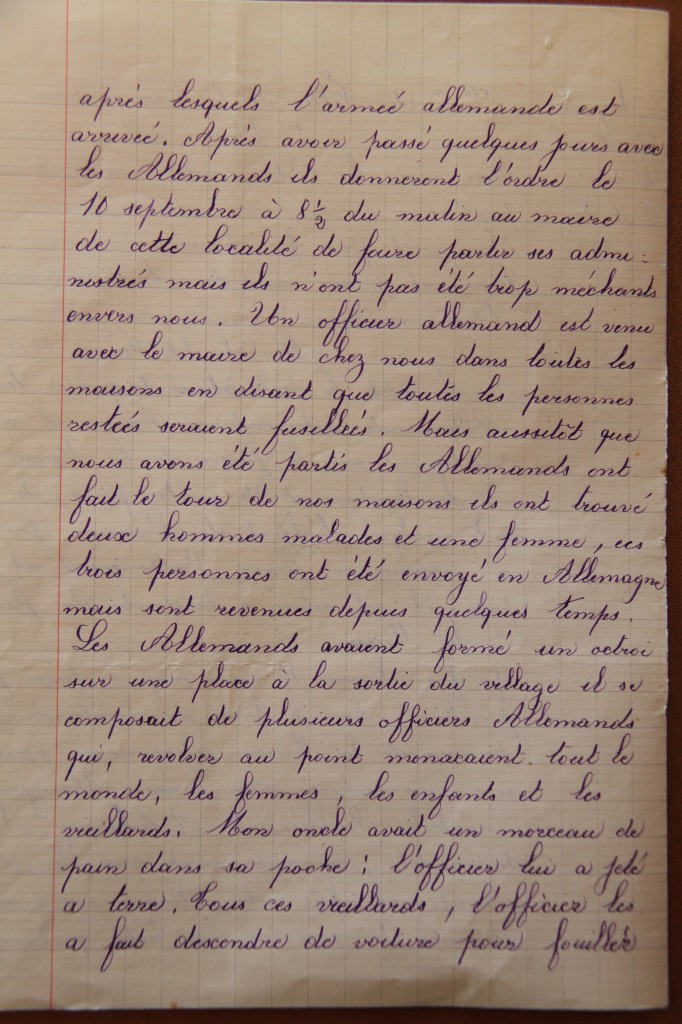 après lesquels l'armeé allemande est
arriveé. Après avoir passé quelques jours avec
les Allemands ils donnèrent l'ordre le
10 septembre à 8 1/2 du matin au maire
de cette localité de faire partir ses admi=
nistrés mais ils n'ont pas été trop méchants
envers nous. Un officier allemand est venu
avec le maire de chez nous dans toutes les
maisons en disant que toutes les personnes
resteés seraient fusilleés. Mais aussitôt que
nous avons été partis les Allemands ont
fait le tour de nos maisons ils ont trouvé
deux hommes malades et une femme, ces
trois personnes ont été envoyé en Allemagne
mais sont revenues depuis quelques temps.
Les Allemands avaient formé un octroi
sur une place à la sortie du village il se
composait de plusieurs officiers Allemands
qui, revolver au point menacaient. tout le
monde, les femmes, les enfants et les
vieillards. Mon oncle avait un morceau de
pain dans sa poche ; l'officier lui a jeté
a terre. Tous ces vieillards, l'officier les
a fait descendre de voiture pour fouiller